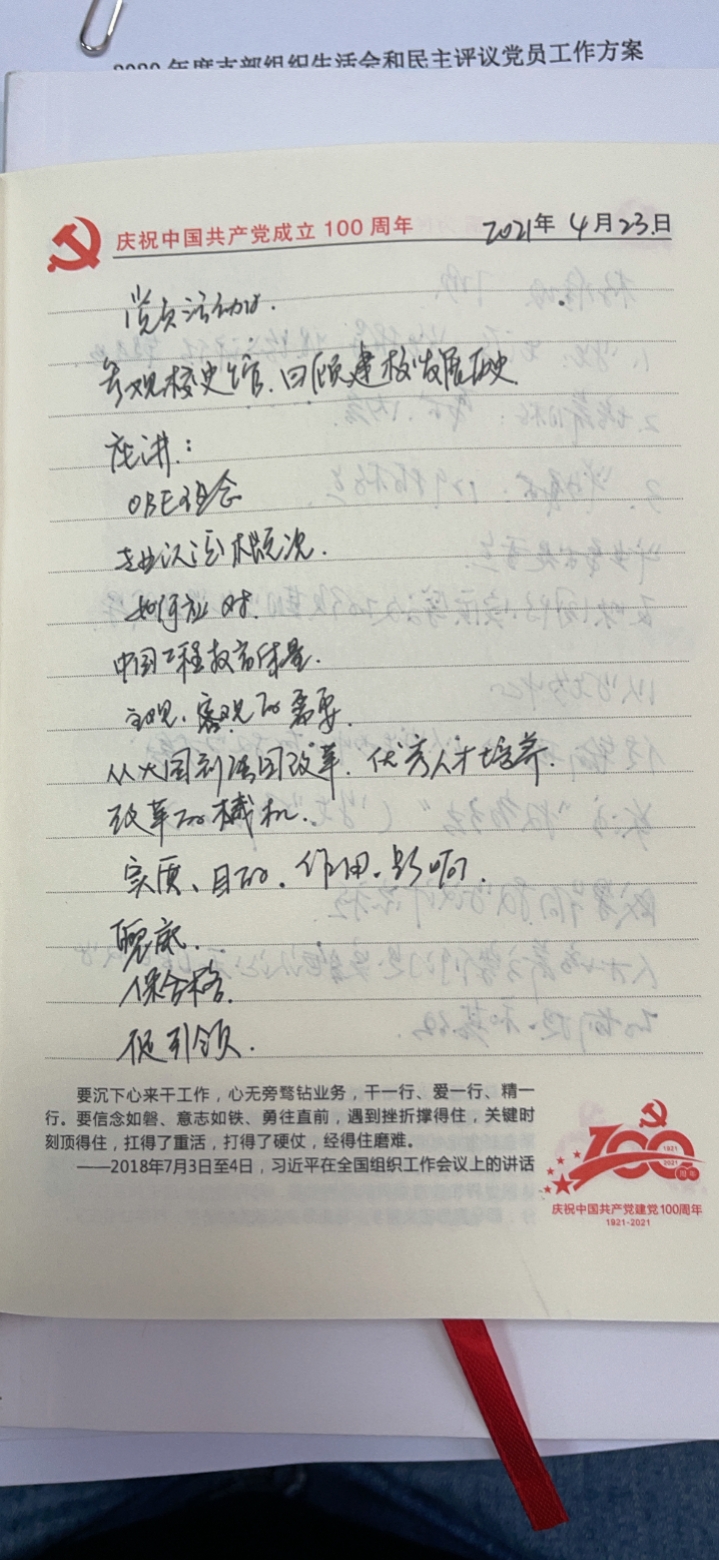 2020年度支部组织生活会和民主评议党员工作方案
庆祝中国共产党成立100周年 2021年4月23日
党员活动
参观校史馆、回顾建校发展历史
座讲:
OBE理念
专业认证概况.
如何应对.
中国工程教育体量.
主观、客观的需要.
从大国到强国改革、优秀人才培养.
改革的 机.
实质、目的、作用、影响.
兜底.
保合格.
促引领.
要沉下心来干工作,心无旁骛钻业务,干一行、爱一行、精一
行。要信念如磐、意志如铁、勇往直前,遇到挫折撑得住,关键时
刻顶得住,扛得了重活,打得了硬仗,经得住磨难。
——2018年7月3日至4日,习近平在全国组织工作会议上的讲话
100
1921
2021
周年
庆祝中国共产党建党100周年
1921-2021